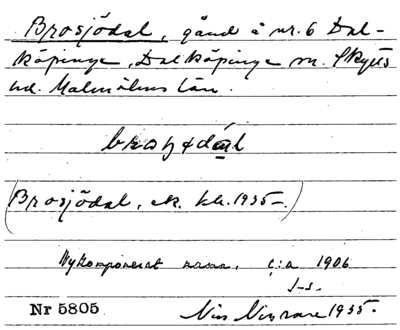 Brosjödal, gård å nr. 6 Dal-
köpinge, Dalköpinge sn. Skytts
hd. Malmöhus län.
(Brosjödal, ek. kb. 1935–.)
Nykomponerat namn, c:a 1906
Nr 5805 Nils 1935.